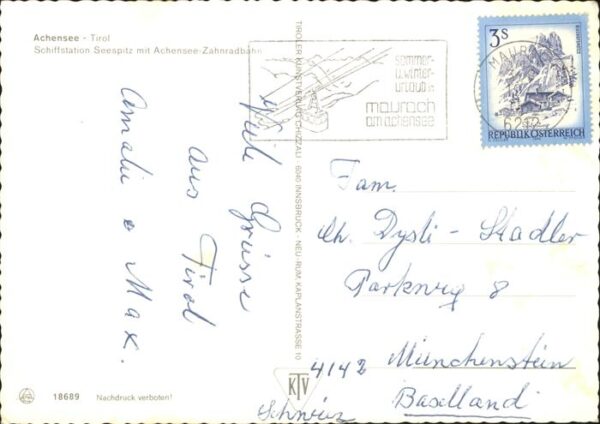 Achensee - Tirol
Schiffstation Seespitz mit Achensee-Zahnradbahn
Viele Grüsse
aus Tirol
Amalie e Max.
18689 Nachdruck verboten!
TIROLER KUNSTVERLAG CHIZZALI · 6040 INNSBRUCK - NEU-RUM, KAPLANSTRASSE 10
KTV
sommer-
u. winter-
urlaub in
maurach
am achensee
MAURACH
6212
3S
REPUBLIK ÖSTERREICH
Fam.
Ch. Dysli-Stadler
Parkweg 8
4142 Münchenstein
Baselland
Schweiz